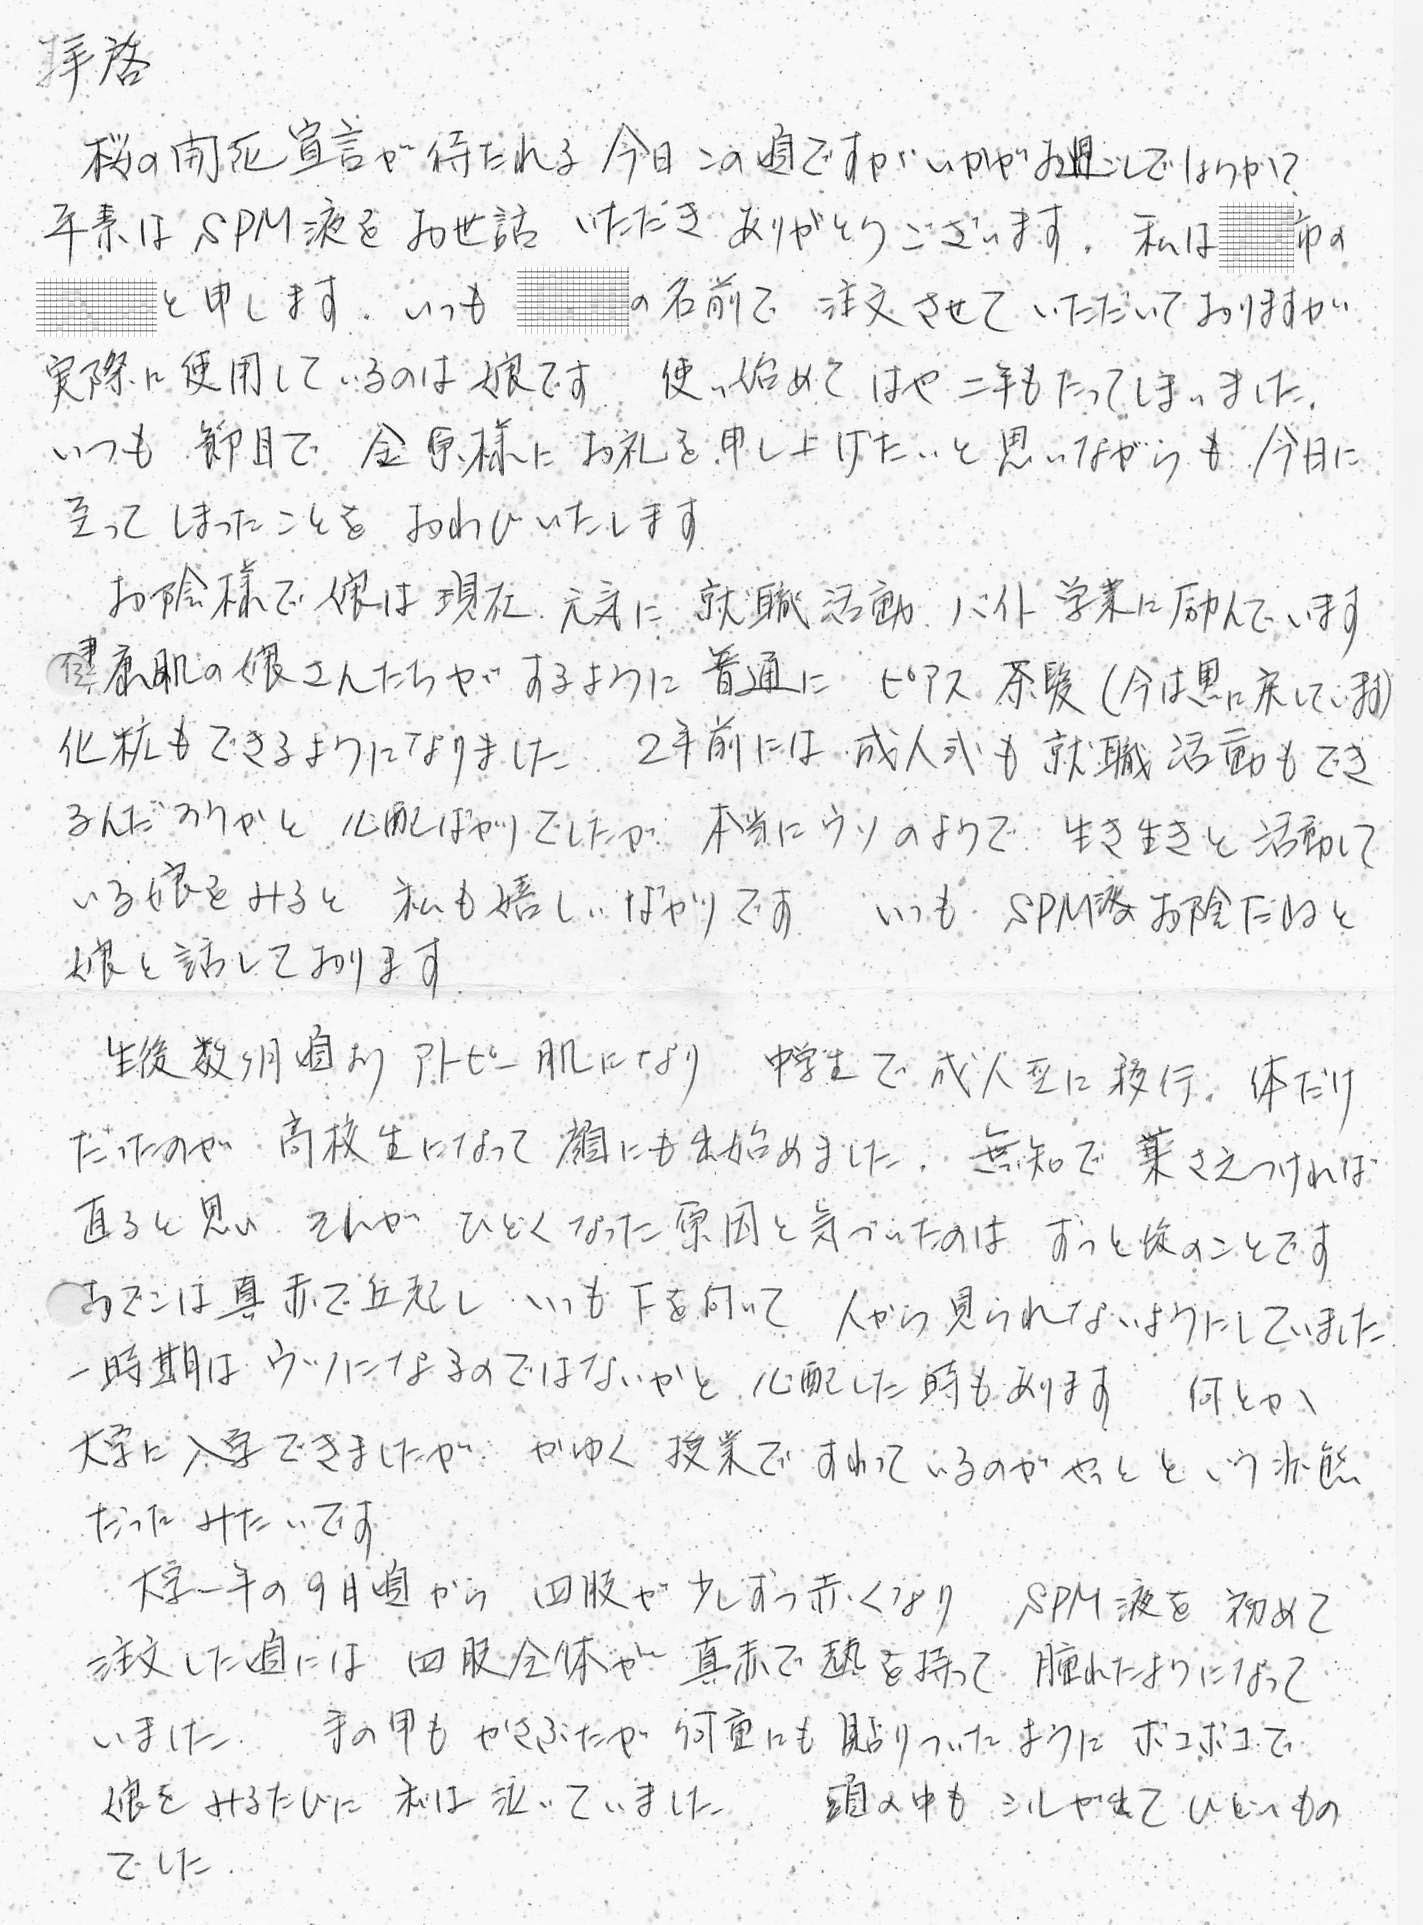 拝啓
桜の開花宣言が待たれる今日この頃ですがいかがお過ごしでしょうか?
平素はSPM液をお世話いただきありがとうございます。私は市の
と申します。いつもの名前で注文させていただいておりますが
実際に使用しているのは娘です 使い始めてはや二年もたってしまいました。
いつも節目で金原様にお礼を申し上げたいと思いながらも今日に
至ってしまったことをおわびいたします
お陰様で娘は現在、元気に就職活動、バイト学業に励んでいます
健康肌の娘さんたちがするように普通にピアス茶髪(今は黒に戻しています)
化粧もできるようになりました 2年前には成人式も就職活動もでき
るんだろうかと心配ばかりでしたが本当にウソのようで生き生きと活動して
いる娘をみると私も嬉しいばかりです いつもSPM液のお陰だねと
娘と話しております
生後数ヶ月頃よりアトピー肌になり中学生で成人型に移行。体だけ
だったのが高校生になって顔にも出始めました。無知で薬さえつければ
直ると思いそれがひどくなった原因と気づいたのはずっと後のことです
おでこは真赤で丘起しいつも下を向いて人から見られないようにしていました
一時期はウツになるのではないかと心配した時もあります 何とか、
大学に入学できましたがかゆく授業ですわっているのがやっとという状態
だったみたいです
大学一年の9月頃から四肢が少しずつ赤くなり SPM液を初めて
注文した頃には四肢全体が真赤で熱を持って腫れたようになって
いました。手の甲もかさぶたが何重にも貼りついたようにボコボコで
娘をみるたびに私は泣いていました 頭の中もシルが出てひどいもの
でした。